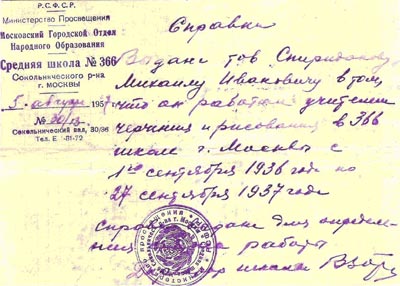 Р.С.Ф.С.Р.
Министерство Просвещения
Московский Городской Отдел
Народного Образования
Средняя школа № 366
Сокольнического р-на
г. МОСКВЫ
5 августа 195
Сокольнический вал, 30/36
Тел. Е -81-72
Справка
Выдана тов Спиридонову
Михаилу Ивановичу в том,
что он работал учителем
черчения и рисования в 366
школе г. Москвы с
1го сентября 1936 года по
27 сентября 1937 года
Справка дана для опреде-
ления работы
Директор школы